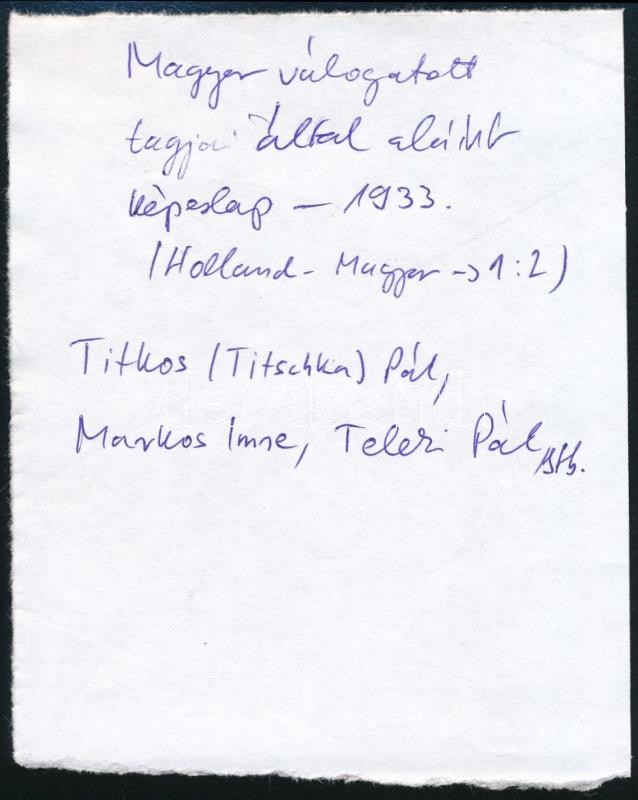 Magyar válogatott
tagjai által aláírt
képeslap – 1933.
(Holland - Magyar -> 1:2)
Titkos (Titschka) Pál,
Markos Imre, Teleki Pál, stb.